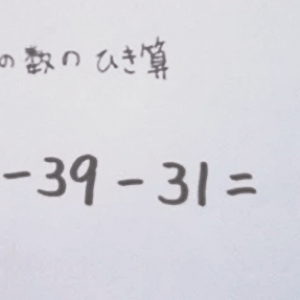 の数のひき算
-39-31=